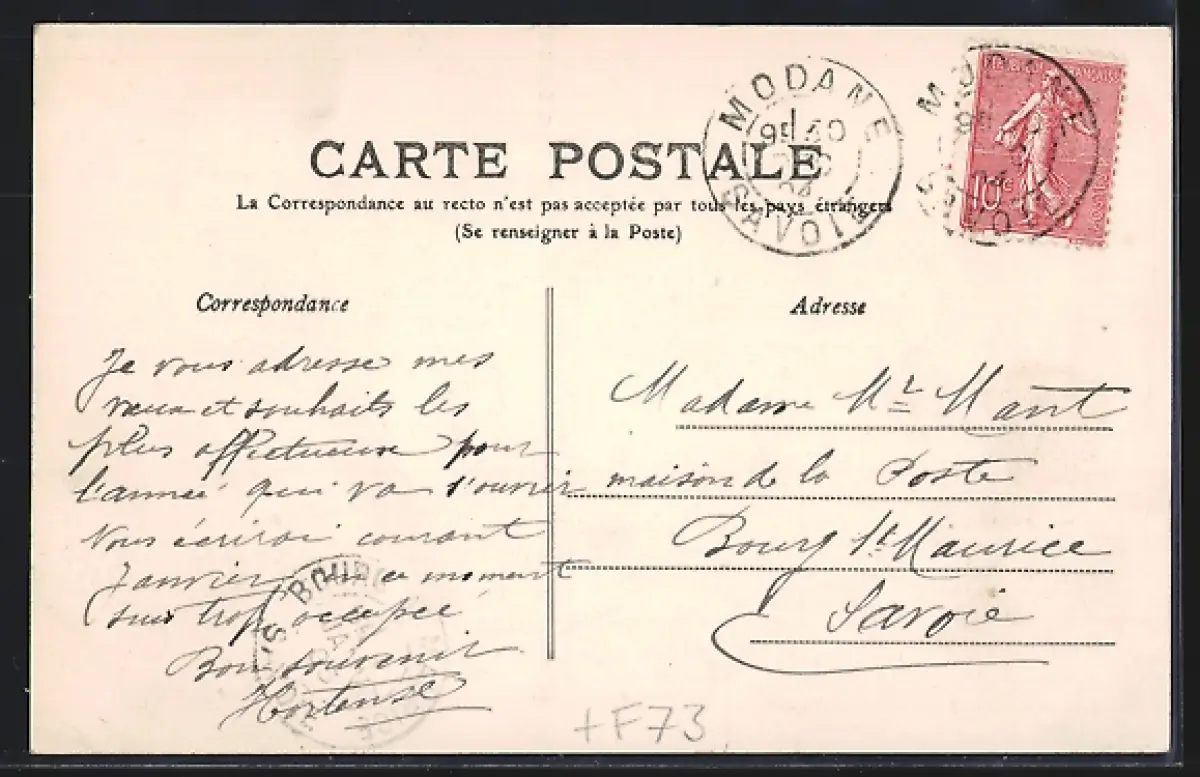 CARTE POSTALE
La Correspondance au recto n'est pas acceptée par tous les pays étrangers
(Se renseigner à la Poste)
MODANE
SAVOIE
MODANE
10c
Correspondance
Je vous adresse mes
vœux et souhaits les
plus affectueux pour
l'année qui va s'ouvrir
Vous écrirai courant
Janvier en ce moment
suis trop occupée
Bon souvenir
Hortense
Adresse
Madame Mt Mant
maison de la Poste
Bourg St Maurice
Savoie
+F73